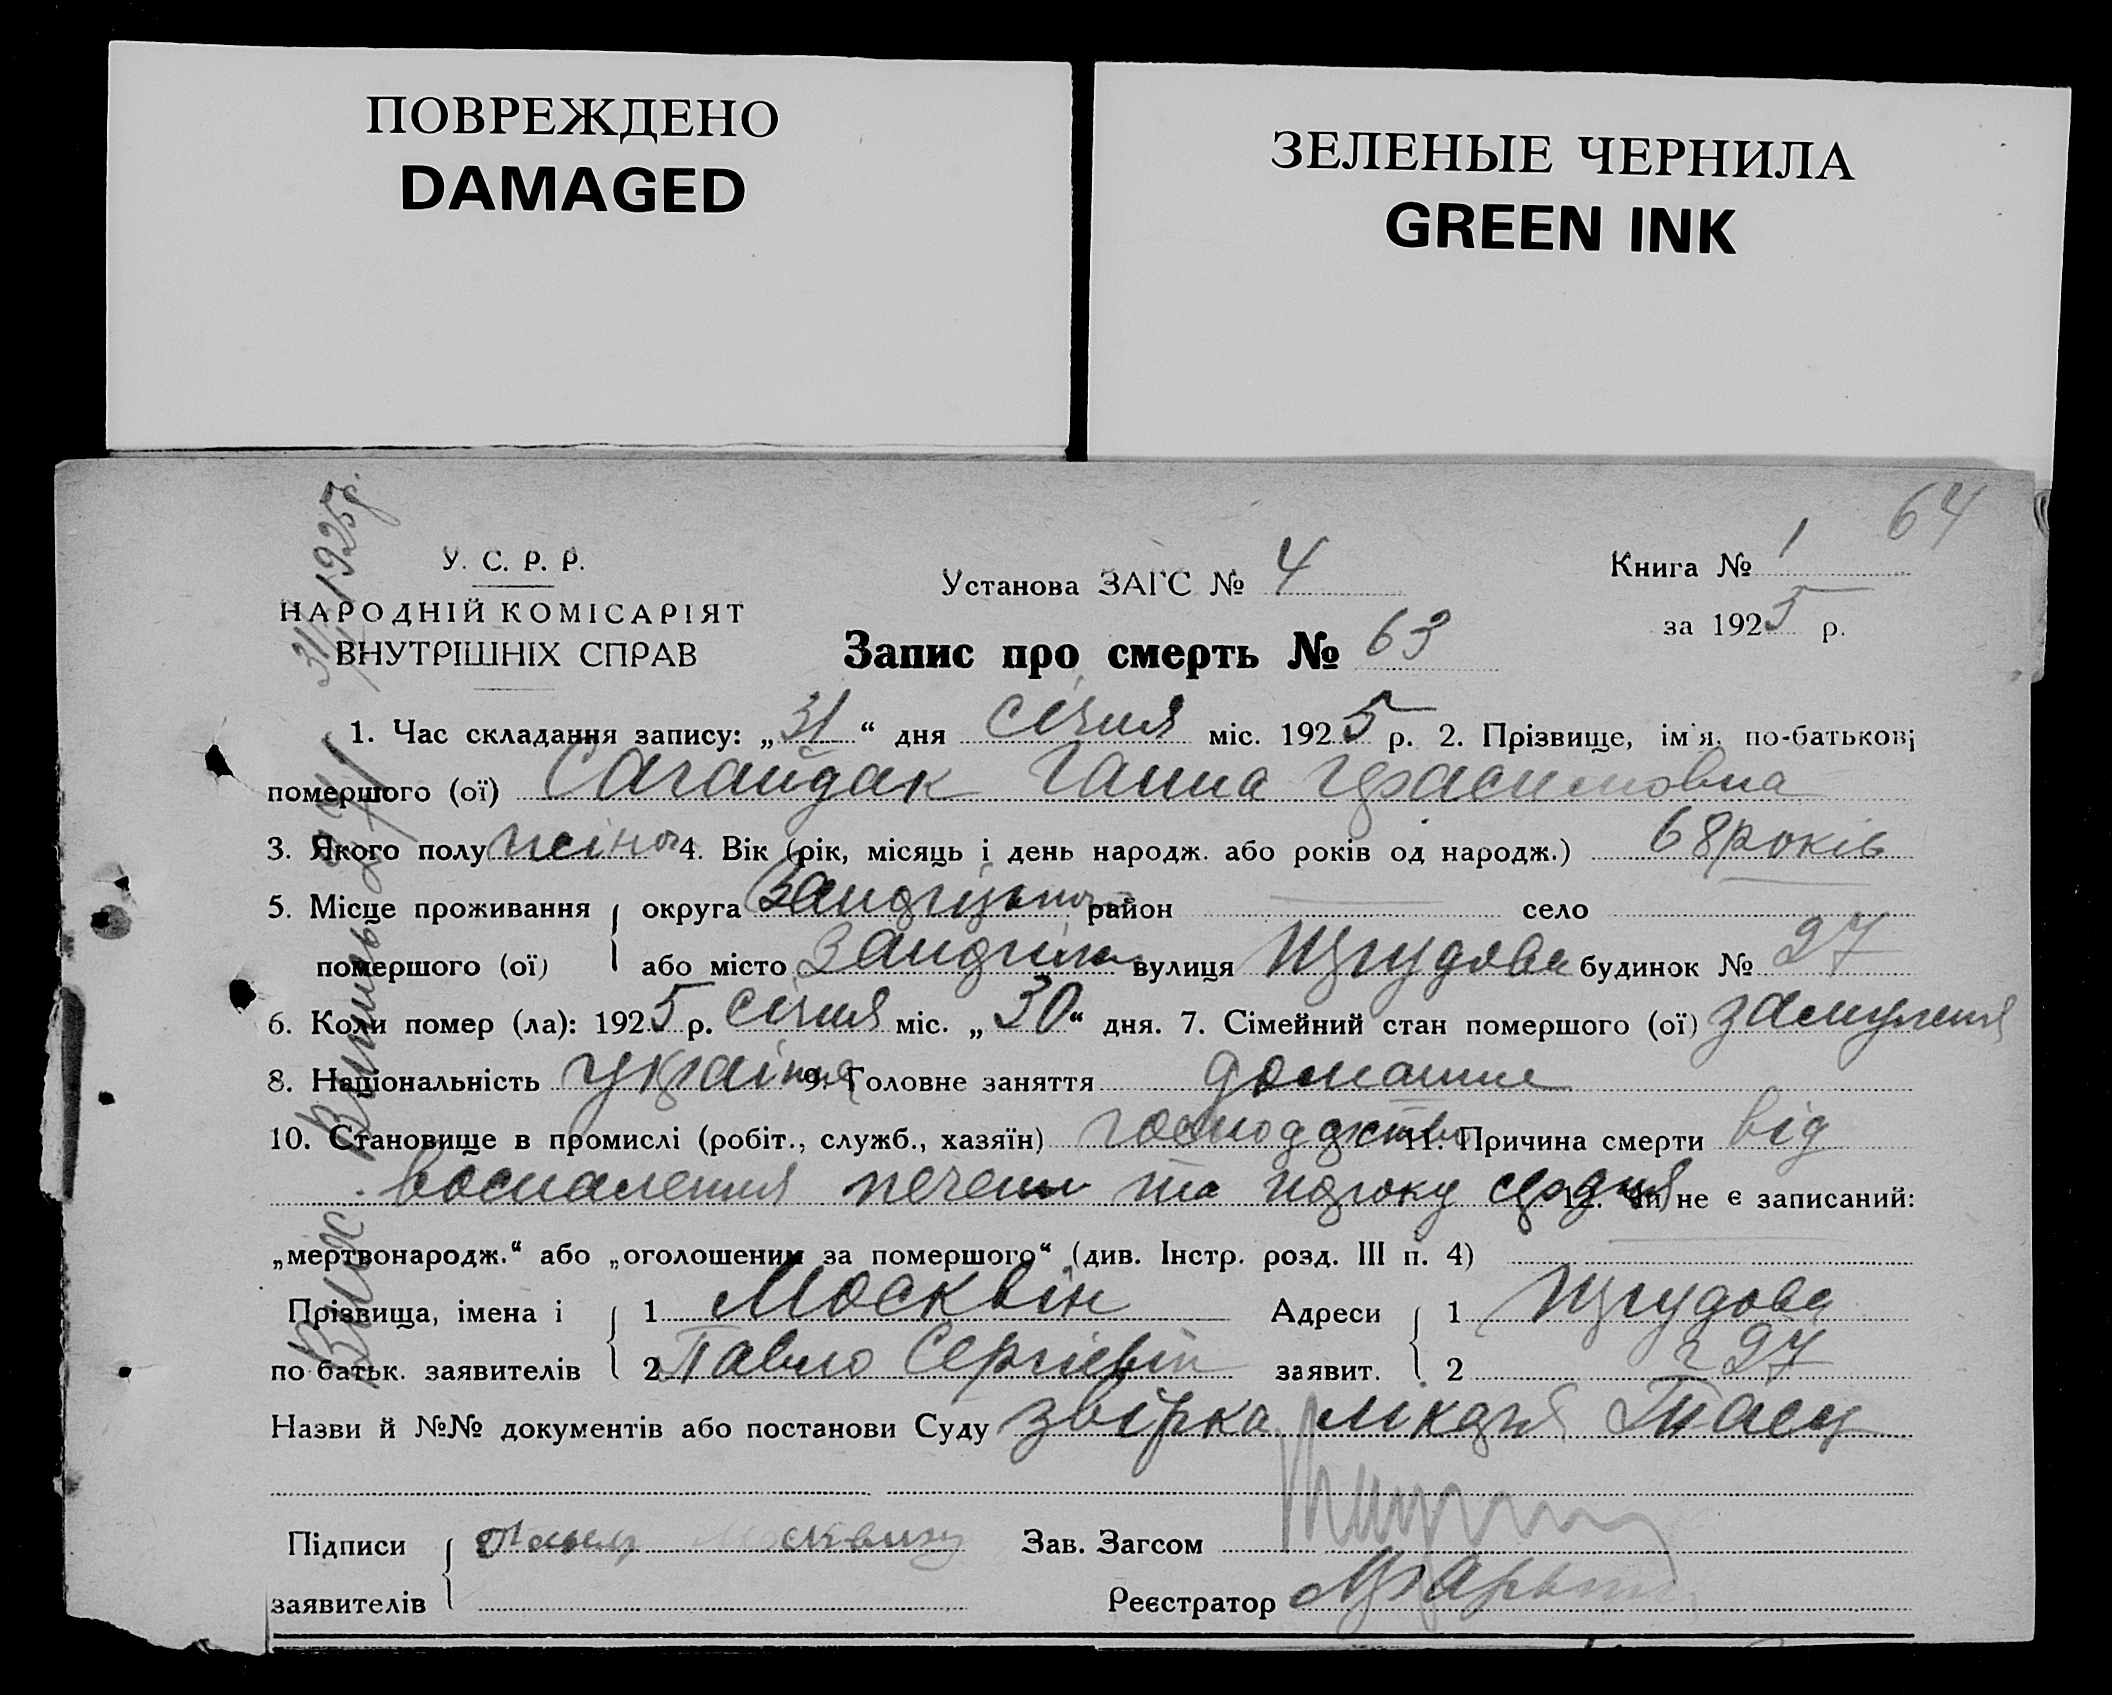 ПОВРЕЖДЕНО
DAMAGED
ЗЕЛЕНЫЕ ЧЕРНИЛА
GREEN INK
64
31/I 1925р.
У. С. Р. Р.
НАРОДНІЙ КОМІСАРІЯТ
ВНУТРІШНІХ СПРАВ
Установа ЗАГС № 4
Книга № 1
за 1925 р.
Запис про смерть № 63
1. Час складання запису: „31“ дня січня міс. 1925 р. 2. Прізвище, ім'я, по-батькові
помершого (ої) Сагайдак Ганна Герасимовна
3. Якого полу жіноч 4. Вік (рік, місяць і день народж. або років од народж.) 68 років
5. Місце проживання округа район село
помершого (ої) або місто вулиця будинок № 27
6. Коли помер (ла): 1925 р. січня міс. „30“ дня. 7. Сімейний стан помершого (ої) замужня
8. Національність україн 9. Головне заняття домашнє
10. Становище в промислі (робіт., служб., хазяїн) господарство 11. Причина смерти від
воспалення печени та пороку сердця 12. Чи не є записаний:
„мертвонародж.“ або „оголошеним за помершого“ (див. Інстр. розд. III п. 4)
Прізвища, імена і 1 Москвін Адреси 1
по батьк. заявителів 2 Павло Сергієвіч заявит. 2 27
Назви й №№ документів або постанови Суду
Підписи Зав. Загсом
заявителів Реєстратор